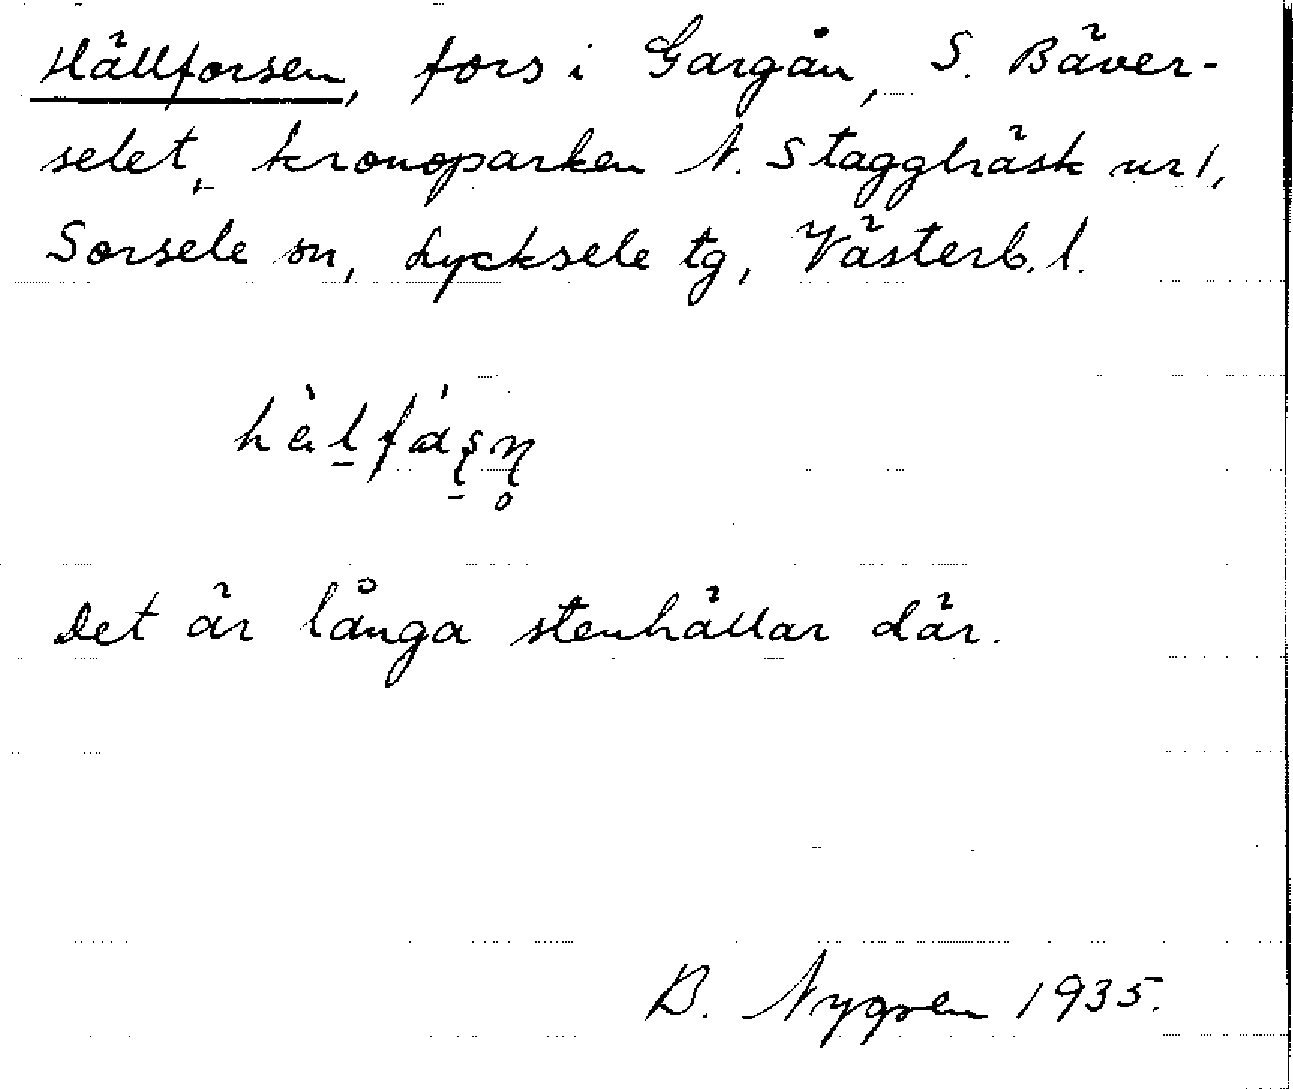 Hällforsen, fors i Gargån, S. Bäver-
selet, kronoparken N. Staggträsk nr 1,
Sorsele sn, Lycksele tg, Västerb. l.
Det är långa stenhällar där.
B. Nygren 1935.